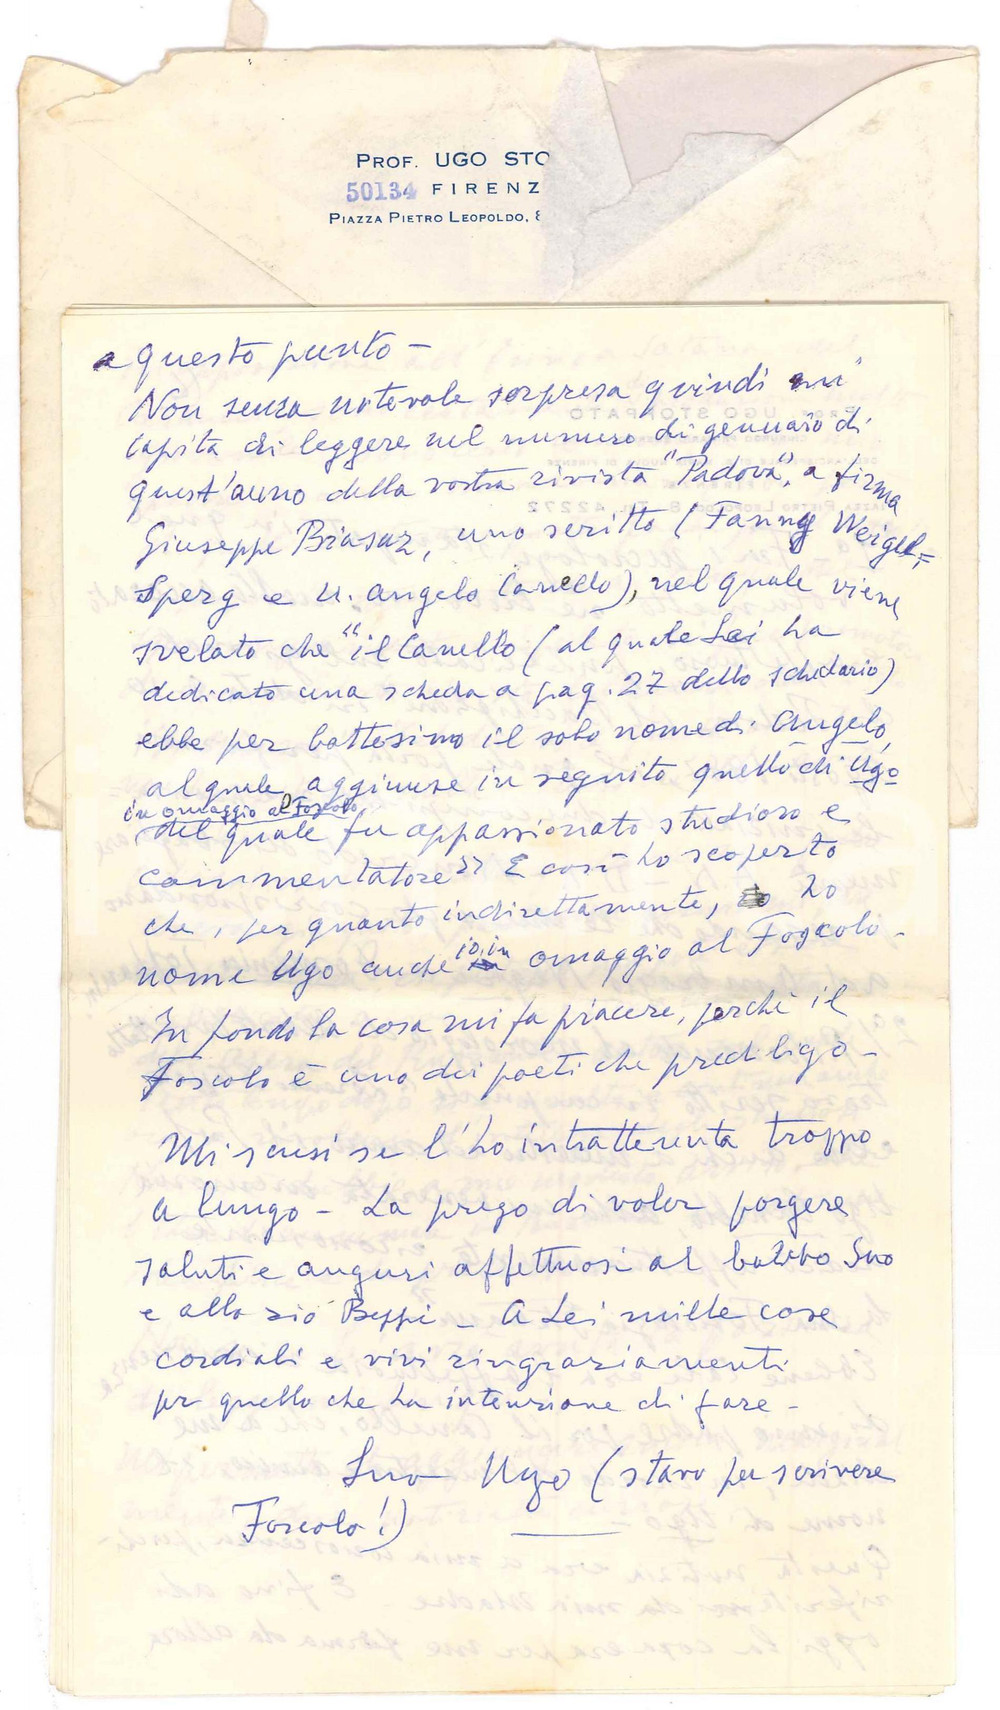 PROF. UGO STO
50134 FIRENZ
PIAZZA PIETRO LEOPOLDO, 8
a questo punto -
Non senza notevole sorpresa quindi mi
capita di leggere nel numero di gennaio di
quest'anno della vostra rivista "Padova", a firma
Giuseppe Biasuz, uno scritto (Fanny Weigel=
sperg e U. Angelo Canello), nel quale viene
svelato che "il Canello (al quale Lei ha
dedicato una scheda a pag. 27 dello schedario)
ebbe per battesimo il solo nome di Angelo,
al quale aggiunse in seguito quello di Ugo
in omaggio al Foscolo,
del quale fu appassionato studioso e
commentatore" E così ho scoperto
che, per quanto indirettamente, ho
nome Ugo anche io, in omaggio al Foscolo -
In fondo la cosa mi fa piacere, perchè il
Foscolo è uno dei poeti che prediligo -
Mi scusi se l'ho intrattenuta troppo
a lungo - La prego di voler porgere
saluti e auguri affettuosi al babbo Suo
e allo zio Beppi - A Lei mille cose
cordiali e vivi ringraziamenti
per quello che ha intenzione di fare -
Suo Ugo (stavo per scrivere
Foscolo!)